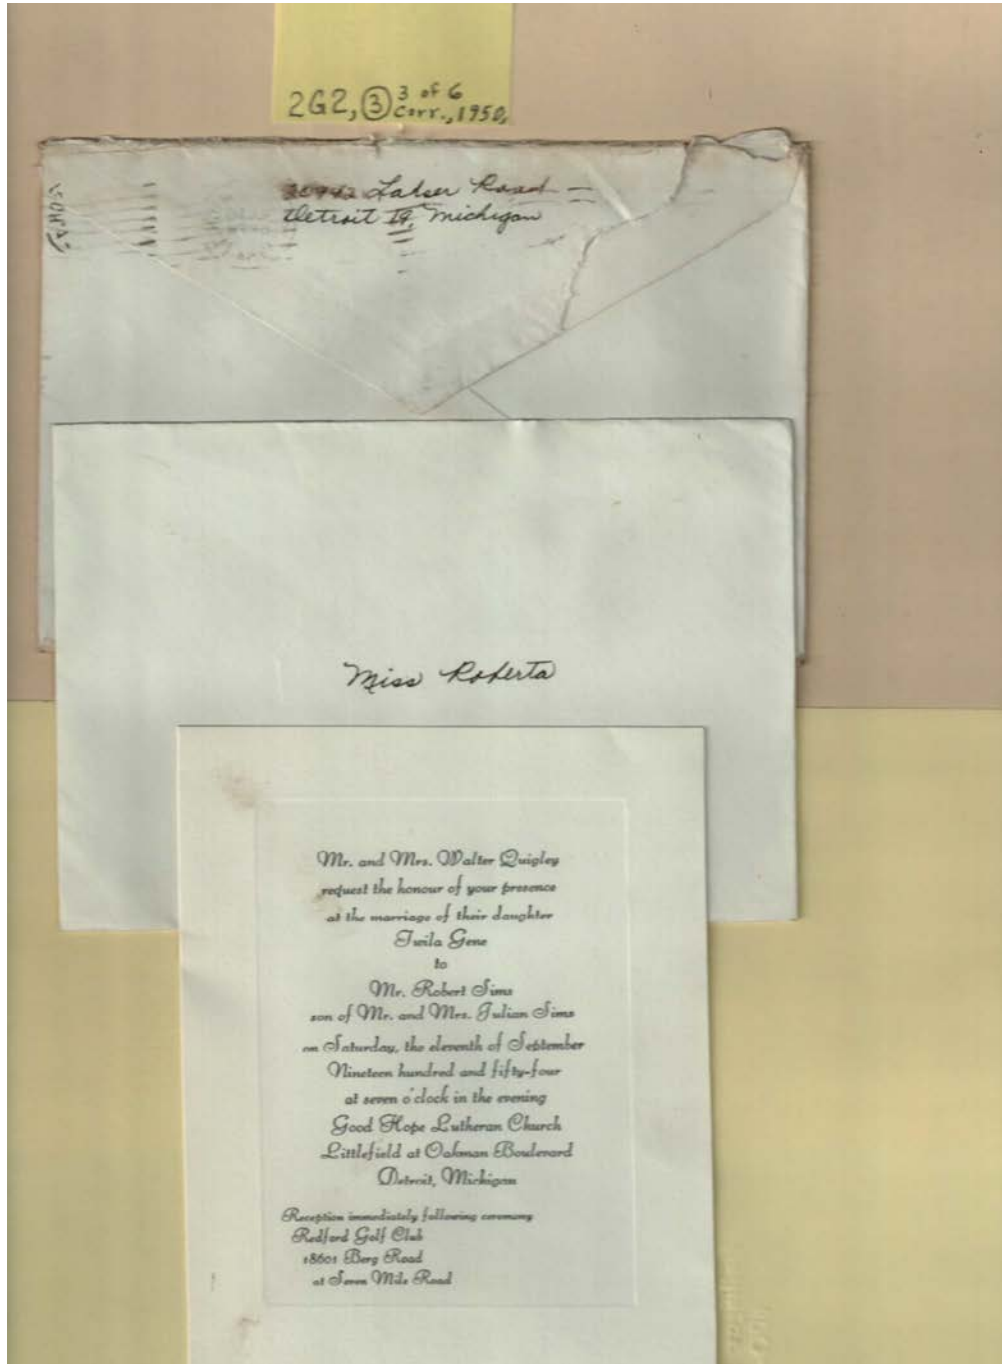 2G2, ③ 3 of 6
Corr., 1950,
20942 Lahser Road
Detroit 19, Michigan
Miss Roberta
Mr. and Mrs. Walter Quigley
request the honour of your presence
at the marriage of their daughter
Twila Gene
to
Mr. Robert Sims
son of Mr. and Mrs. Julian Sims
on Saturday, the eleventh of September
Nineteen hundred and fifty-four
at seven o'clock in the evening
Good Hope Lutheran Church
Littlefield at Oakman Boulevard
Detroit, Michigan
Reception immediately following ceremony
Redford Golf Club
18601 Berg Road
at Seven Mile Road